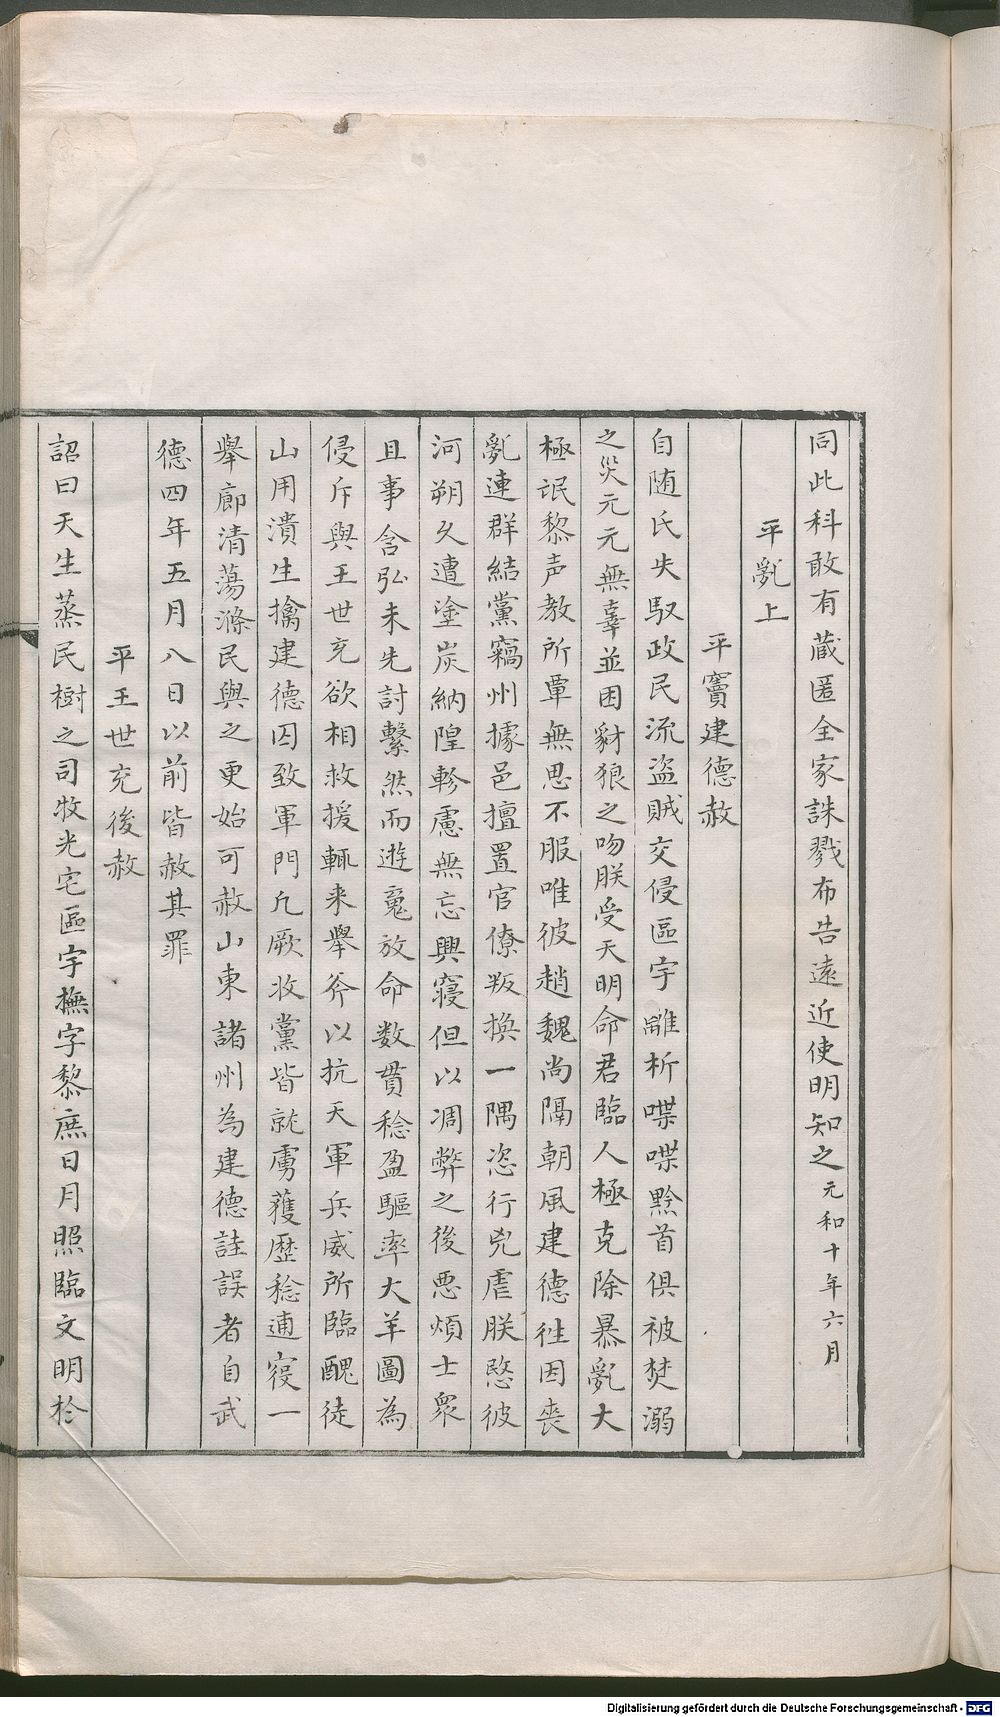 同此科敢有蔵匿全家誅戮布告遠近使明知之元和十年六月
平亂上
平竇建德赦
自随氏失馭政民流盗賊交侵區宇離析喋喋黔首俱被焚溺
之災元元無辜並困豺狼之吻朕受天明命君臨人極克除暴亂大
極氓黎声教所覃無思不服唯彼趙魏尚隔朝風建德徃因喪
亂連群結黨竊州據邑擅置官僚叛換一隅恣行兇虐朕愍彼
河朔久遭塗炭納隍軫慮無忘興寢但以凋弊之後悪煩士衆
且事含弘未先討繫然而遊䰟放命数貫稔盈驅率大羊圖為
侵斥與王世充欲相救援輒来舉斧以抗天軍兵威所臨醜徒
山用潰生擒建德囚致軍門凢厥收黨皆就虜蒦歴稔逋寇一
舉廓清蕩滌民與之更始可赦山東諸州為建德詿誤者自武
德四年五月八日以前皆赦其罪
平王世充後赦
詔曰天生蒸民樹之司牧光宅區宇撫字黎庶日月照臨文明於
Digitalisierung gefördert durch die Deutsche Forschungsgemeinschaft - DFG